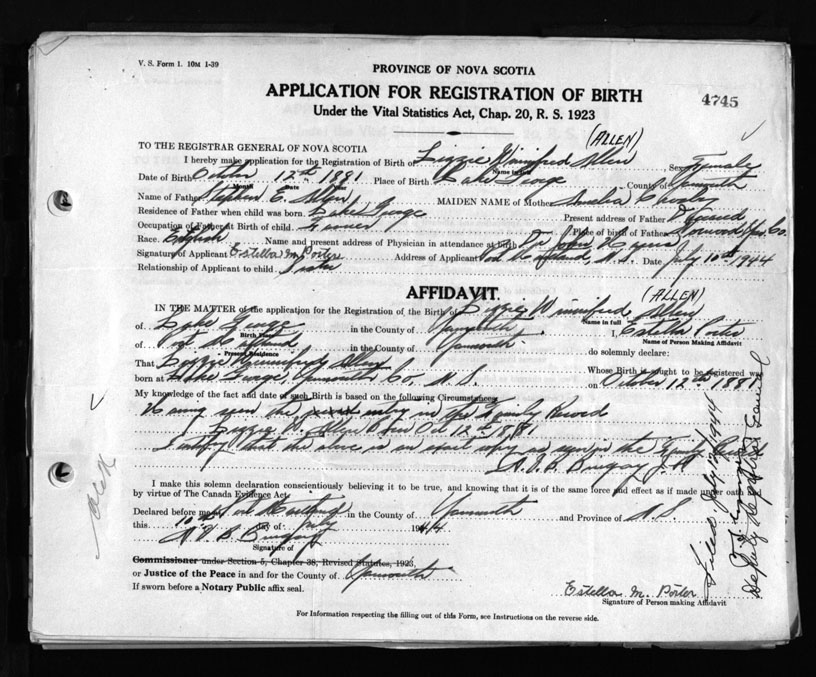 V. S. Form 1. 10M 1-39
PROVINCE OF NOVA SCOTIA
APPLICATION FOR REGISTRATION OF BIRTH
4745
Under the Vital Statistics Act, Chap. 20, R. S. 1923
(ALLEN)
TO THE REGISTRAR GENERAL OF NOVA SCOTIA
I hereby make application for the Registration of Birth of Lizzie Winnifred Allen Sex Female
Name in full
Date of Birth October 12th 1881 Place of Birth Lake George County of Yarmouth
Month Date Year
Name of Father Stephen E. Allen MAIDEN NAME of Mother Amelia
Residence of Father when child was born. Lake George Present address of Father
Occupation of Father at Birth of child. Farmer Place of birth of Father Norwood Yar. Co.
Race. English Name and present address of Physician in attendance at birth Dr John
Signature of Applicant Estella M. Porter Address of Applicant Port Maitland, N.S. Date July 10th 1944
Relationship of Applicant to child. Sister
AFFIDAVIT.
(ALLEN)
IN THE MATTER of the application for the Registration of the Birth of Lizzie Winnifred Allen
Name in full
of. Lake George in the County of Yarmouth I, Estella Porter
Birth Place Name of Person Making Affidavit
of Port Maitland in the County of Yarmouth do solemnly declare:
Present Residence
That Lizzie Winnifred Allen Whose Birth is sought to be registered was
born at Lake George, Yarmouth Co, N.S. on October 12th 1881
My knowledge of the fact and date of such Birth is based on the following Circumstances
Having seen the entry in the Family Record
Lizzie W. Allen Born Oct 12th 1881
I certify that the above is an exact copy as seen in the Family Record
I make this solemn declaration conscientiously believing it to be true, and knowing that it is of the same force and effect as if made under oath
by virtue of The Canada Evidence Act.
Declared before me at Port Maitland in the County of Yarmouth and Province of N.S.
this 10th day of July 1944
Signature of
Commissioner under Section 5, Chapter 38, Revised Statutes, 1923,
or Justice of the Peace in and for the County of Yarmouth
If sworn before a Notary Public affix seal.
Estella M. Porter
Signature of Person making Affidavit
For Information respecting the filling out of this Form, see Instructions on the reverse side.
Filed July 1944
Deputy Registrar General